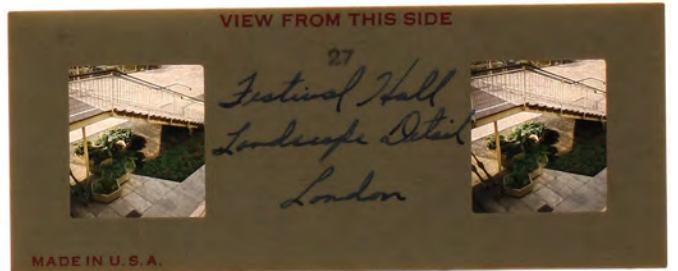 VIEW FROM THIS SIDE
27
Festival Hall
Landscape Detail
London
MADE IN U.S.A.